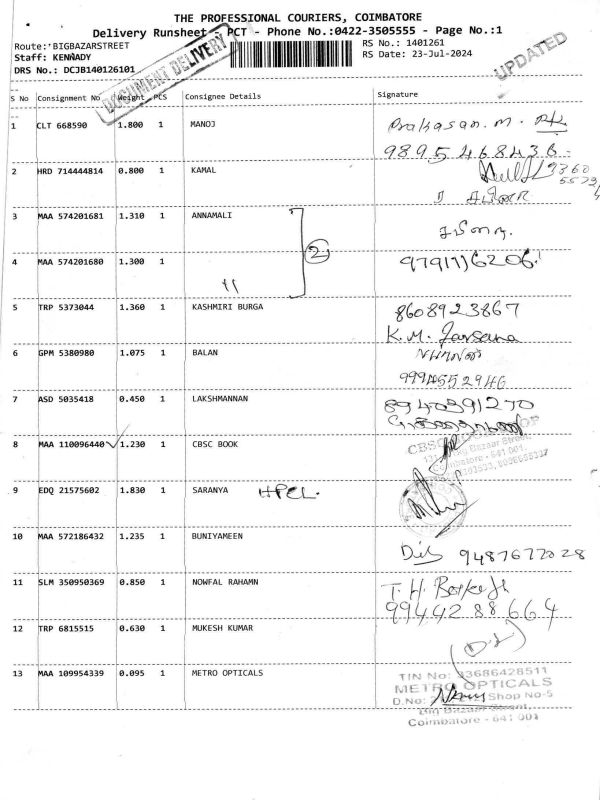 THE PROFESSIONAL COURIERS, COIMBATORE
Delivery Runsheet - PCT - Phone No.:0422-3505555 - Page No.:1
Route: BIGBAZARSTREET
RS No.: 1401261
Staff: KENNADY
RS Date: 23-Jul-2024
DRS No.: DCJB140126101
DOCUMENT DELIVERY
UPDATED
S No Consignment No Weight PCS Consignee Details Signature
1 CLT 668590 1.800 1 MANOJ Prakasan.m.
9895468436
2 HRD 714444814 0.800 1 KAMAL
3 MAA 574201681 1.310 1 ANNAMALI
4 MAA 574201680 1.300 1 " 2 9791716206
5 TRP 5373044 1.360 1 KASHMIRI BURGA 8608923867
K.M. Farsana
6 GPM 5380980 1.075 1 BALAN
9994552946
7 ASD 5035418 0.450 1 LAKSHMANNAN 8940391270
8 MAA 110096440 1.230 1 CBSC BOOK
9 EDQ 21575602 1.830 1 SARANYA HPCL.
10 MAA 572186432 1.235 1 BUNIYAMEEN
9487677028
11 SLM 350950369 0.850 1 NOWFAL RAHAMN T.H
9944288664
12 TRP 6815515 0.630 1 MUKESH KUMAR
13 MAA 109954339 0.095 1 METRO OPTICALS TIN No: 33686428511
METRO OPTICALS
D.No: Shop No-5
Big Bazaar Street,
Coimbatore - 641 001